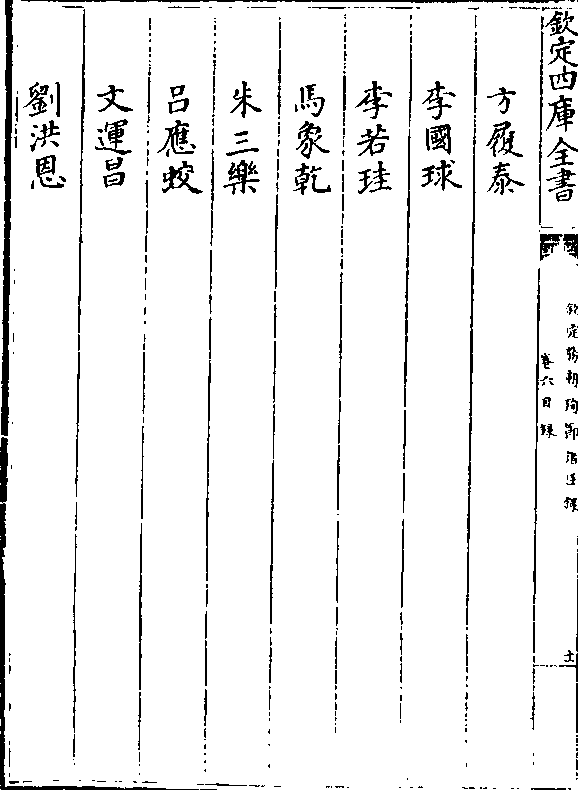 欽定四庫全書
欽定勝朝殉節諸臣錄
卷六目錄
十
方履泰
李國球
李若珪
馬象乾
朱三樂
呂應蛟
文運昌
劉洪恩